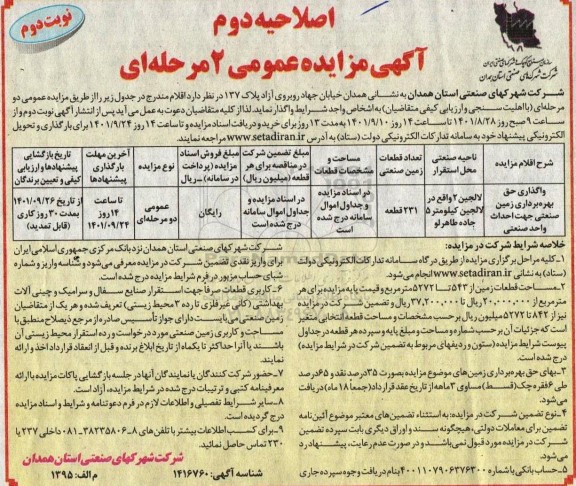 نوبت دوم
اصلاحیه دوم
آگهی مزایده عمومی ۲ مرحله‌ای
شرکت شهرکهای صنعتی استان همدان
شرکت شهرکهای صنعتی استان همدان به نشانی همدان خیابان جهاد روبروی آزاد پلاک ۱۳۷ در نظر دارد اقلام مندرج در جدول زیر را از طریق مزایده عمومی دو
مرحله‌ای (با اهلیت سنجی و ارزیابی کیفی متقاضیان) به اشخاص واجد شرایط واگذار نماید. لذا از کلیه متقاضیان دعوت به عمل می آید پس از انتشار آگهی نوبت دوم و از
ساعت ۹ صبح روز ۱۴۰۱/۸/۲۸ تا ساعت ۱۴ روز ۱۴۰۱/۹/۱۰ به مدت ۱۳ روز برای خرید و دریافت اسناد مزایده و تا ساعت ۱۴ روز ۱۴۰۱/۹/۲۴ برای بارگذاری و تحویل
الکترونیکی پیشنهاد خود به سامانه تدارکات الکترونیکی دولت (ستاد) به آدرس www.setadiran.ir مراجعه نمایند.
شرح اقلام مزایده
ناحیه صنعتی محل استقرار
تعداد قطعات زمین صنعتی
مساحت و مشخصات قطعات
مبلغ تضمین شرکت در مناقصه برای هر قطعه (میلیون ریال)
مبلغ فروش اسناد مزایده (پرداخت در سامانه) - ریال
نوع مزایده
آخرین مهلت بارگذاری پیشنهادها
تاریخ بازگشایی پیشنهادها و ارزیابی کیفی و تعیین برندگان
واگذاری حق بهره‌برداری زمین صنعتی جهت احداث واحد صنعتی
لالجین ۲ واقع در لالجین کیلومتر ۵ جاده طاهرلو
۲۳۱ قطعه
در اسناد مزایده و جداول اموال سامانه درج شده است
در اسناد مزایده و جداول اموال سامانه درج شده است
رایگان
عمومی دو مرحله‌ای
تا ساعت ۱۴ روز ۱۴۰۱/۰۹/۲۴
از تاریخ ۱۴۰۱/۰۹/۲۶ بمدت ۳۰ روز کاری (قابل تمدید)
خلاصه شرایط شرکت در مزایده:
۱-کلیه مراحل برگزاری مزایده از طریق درگاه سامانه تدارکات الکترونیکی دولت
(ستاد) به نشانی www.setadiran.ir انجام می‌شود.
۲-مساحت قطعات زمین از ۵۴۳ تا ۵۲۷۲ مترمربع و قیمت پایه مزایده برای هر
مترمربع از ۲۰,۰۰۰,۰۰۰ ریال تا ۳۷,۲۰۰,۰۰۰ ریال و تضمین شرکت در مزایده
نیز از ۸۴۲ تا ۵۲۷۲ میلیون ریال بر حسب مشخصات و مساحت قطعه انتخابی متغیر
است که جزئیات آن بر حسب شماره و مساحت و مبلغ پایه و سپرده هر قطعه در جداول
پیوست شرایط مزایده (ستون و ردیفهای مربوط به تضمین شرکت در شرایط مزایده)
درج شده است.
۳-بهای حق بهره‌برداری زمین‌های موضوع مزایده بصورت ۳۵درصد نقد و ۶۵درصد
طی ۶ فقره چک (قسط) مساوی ۳ ماهه از تاریخ عقد قرارداد (جمعا ۱۸ ماه) دریافت
می شود.
۴-نوع تضمین شرکت در مزایده: به استثناء تضمین‌های معتبر موضوع آئین‌نامه
تضمین برای معاملات دولتی، هیچگونه سند و اوراق دیگری بابت سپرده تضمین
شرکت در مزایده مورد قبول نمی‌باشد و در صورت عدم رعایت، پیشنهاد رد
می شود.
۵-حساب بانکی با شماره ۴۰۰۱۱۰۷۹۰۶۳۷۶۳۰۰ بنام دریافت و جوه سپرده جاری
شرکت شهرکهای صنعتی استان همدان نزد بانک مرکزی جمهوری اسلامی ایران
برای واریز نقدی تضمین شرکت در مزایده معرفی می‌شود و شناسه واریز و شماره
شبای حساب مزبور در فرم شرایط مزایده درج شده است.
۶-کاربری قطعات صرفا جهت استقرار صنایع سفال و سرامیک و چینی آلات
بهداشتی (کانی غیرفلزی تا رده ۳ محیط زیستی) تعریف شده و هریک از متقاضیان
زمین صنعتی می‌بایست دارای جواز تأسیس صادره از مرجع ذیصلاح منطبق با
مساحت و کاربری زمین صنعتی مورد درخواست و رده استقرار محیط زیستی آن
باشند یا آنرا حداکثر تا یکماه از تاریخ ابلاغ برنده و قبل از انعقاد قرارداد اخذ و ارائه
نمایند.
۷-حضور شرکت کنندگان یا نمایندگان آنها در جلسه بازگشایی پاکات مزایده با ارائه
معرفینامه کتبی و ترتیبات درج شده در شرایط مزایده، آزاد است.
۸-سایر شرایط تفصیلی و اطلاعات لازم در فرم دعوتنامه و شرایط و اسناد مزایده
درج گردیده است.
۹-برای کسب اطلاعات بیشتر با تلفن های ۸-۳۸۲۳۵۸۰۶-۰۸۱ داخلی ۲۳۷ یا
۲۳۰ تماس حاصل نمائید.
شرکت شهرکهای صنعتی استان همدان
شناسه آگهی: ۱۴۱۶۷۶۰
م الف: ۱۳۹۵